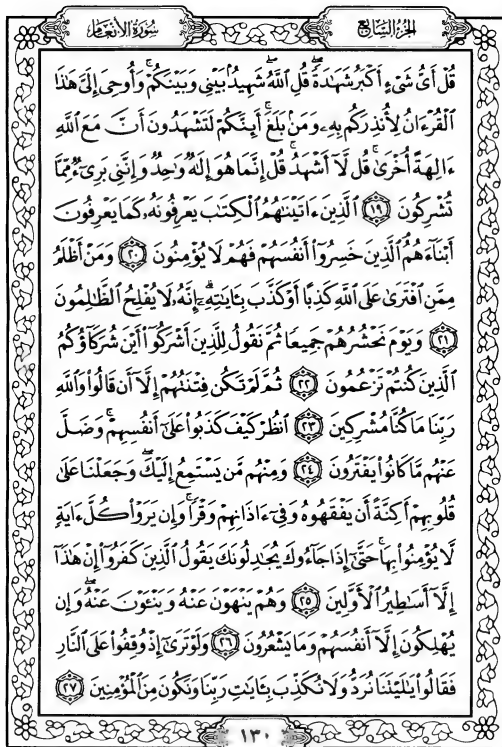 سُورَةُ الأَنْعَامِ
الجُزْءُ السَّابِعُ
قُلْ أَيُّ شَىْءٍ أَكْبَرُ شَهَٰدَةً ۖ قُلِ ٱللَّهُ ۖ شَهِيدٌۢ بَيْنِى وَبَيْنَكُمْ ۚ وَأُوحِىَ إِلَىَّ هَٰذَا
ٱلْقُرْءَانُ لِأُنذِرَكُم بِهِۦ وَمَنۢ بَلَغَ ۚ أَئِنَّكُمْ لَتَشْهَدُونَ أَنَّ مَعَ ٱللَّهِ
ءَالِهَةً أُخْرَىٰ ۚ قُل لَّآ أَشْهَدُ ۚ قُلْ إِنَّمَا هُوَ إِلَٰهٌ وَٰحِدٌ وَإِنَّنِى بَرِىٓءٌ مِّمَّا
تُشْرِكُونَ ١٩ ٱلَّذِينَ ءَاتَيْنَٰهُمُ ٱلْكِتَٰبَ يَعْرِفُونَهُۥ كَمَا يَعْرِفُونَ
أَبْنَآءَهُمُ ٱلَّذِينَ خَسِرُوٓا۟ أَنفُسَهُمْ فَهُمْ لَا يُؤْمِنُونَ ٢٠ وَمَنْ أَظْلَمُ
مِمَّنِ ٱفْتَرَىٰ عَلَى ٱللَّهِ كَذِبًا أَوْ كَذَّبَ بِـَٔايَٰتِهِۦٓ ۗ إِنَّهُۥ لَا يُفْلِحُ ٱلظَّٰلِمُونَ
٢١ وَيَوْمَ نَحْشُرُهُمْ جَمِيعًا ثُمَّ نَقُولُ لِلَّذِينَ أَشْرَكُوٓا۟ أَيْنَ شُرَكَآؤُكُمُ
ٱلَّذِينَ كُنتُمْ تَزْعُمُونَ ٢٢ ثُمَّ لَمْ تَكُن فِتْنَتُهُمْ إِلَّآ أَن قَالُوا۟ وَٱللَّهِ
رَبِّنَا مَا كُنَّا مُشْرِكِينَ ٢٣ ٱنظُرْ كَيْفَ كَذَبُوا۟ عَلَىٰٓ أَنفُسِهِمْ ۚ وَضَلَّ
عَنْهُم مَّا كَانُوا۟ يَفْتَرُونَ ٢٤ وَمِنْهُم مَّن يَسْتَمِعُ إِلَيْكَ ۖ وَجَعَلْنَا عَلَىٰ
قُلُوبِهِمْ أَكِنَّةً أَن يَفْقَهُوهُ وَفِىٓ ءَاذَانِهِمْ وَقْرًا ۚ وَإِن يَرَوْا۟ كُلَّ ءَايَةٍ
لَّا يُؤْمِنُوا۟ بِهَا ۚ حَتَّىٰٓ إِذَا جَآءُوكَ يُجَٰدِلُونَكَ يَقُولُ ٱلَّذِينَ كَفَرُوٓا۟ إِنْ هَٰذَآ
إِلَّآ أَسَٰطِيرُ ٱلْأَوَّلِينَ ٢٥ وَهُمْ يَنْهَوْنَ عَنْهُ وَيَنْـَٔوْنَ عَنْهُ ۖ وَإِن
يُهْلِكُونَ إِلَّآ أَنفُسَهُمْ وَمَا يَشْعُرُونَ ٢٦ وَلَوْ تَرَىٰٓ إِذْ وُقِفُوا۟ عَلَى ٱلنَّارِ
فَقَالُوا۟ يَٰلَيْتَنَا نُرَدُّ وَلَا نُكَذِّبَ بِـَٔايَٰتِ رَبِّنَا وَنَكُونَ مِنَ ٱلْمُؤْمِنِينَ ٢٧
١٣٠